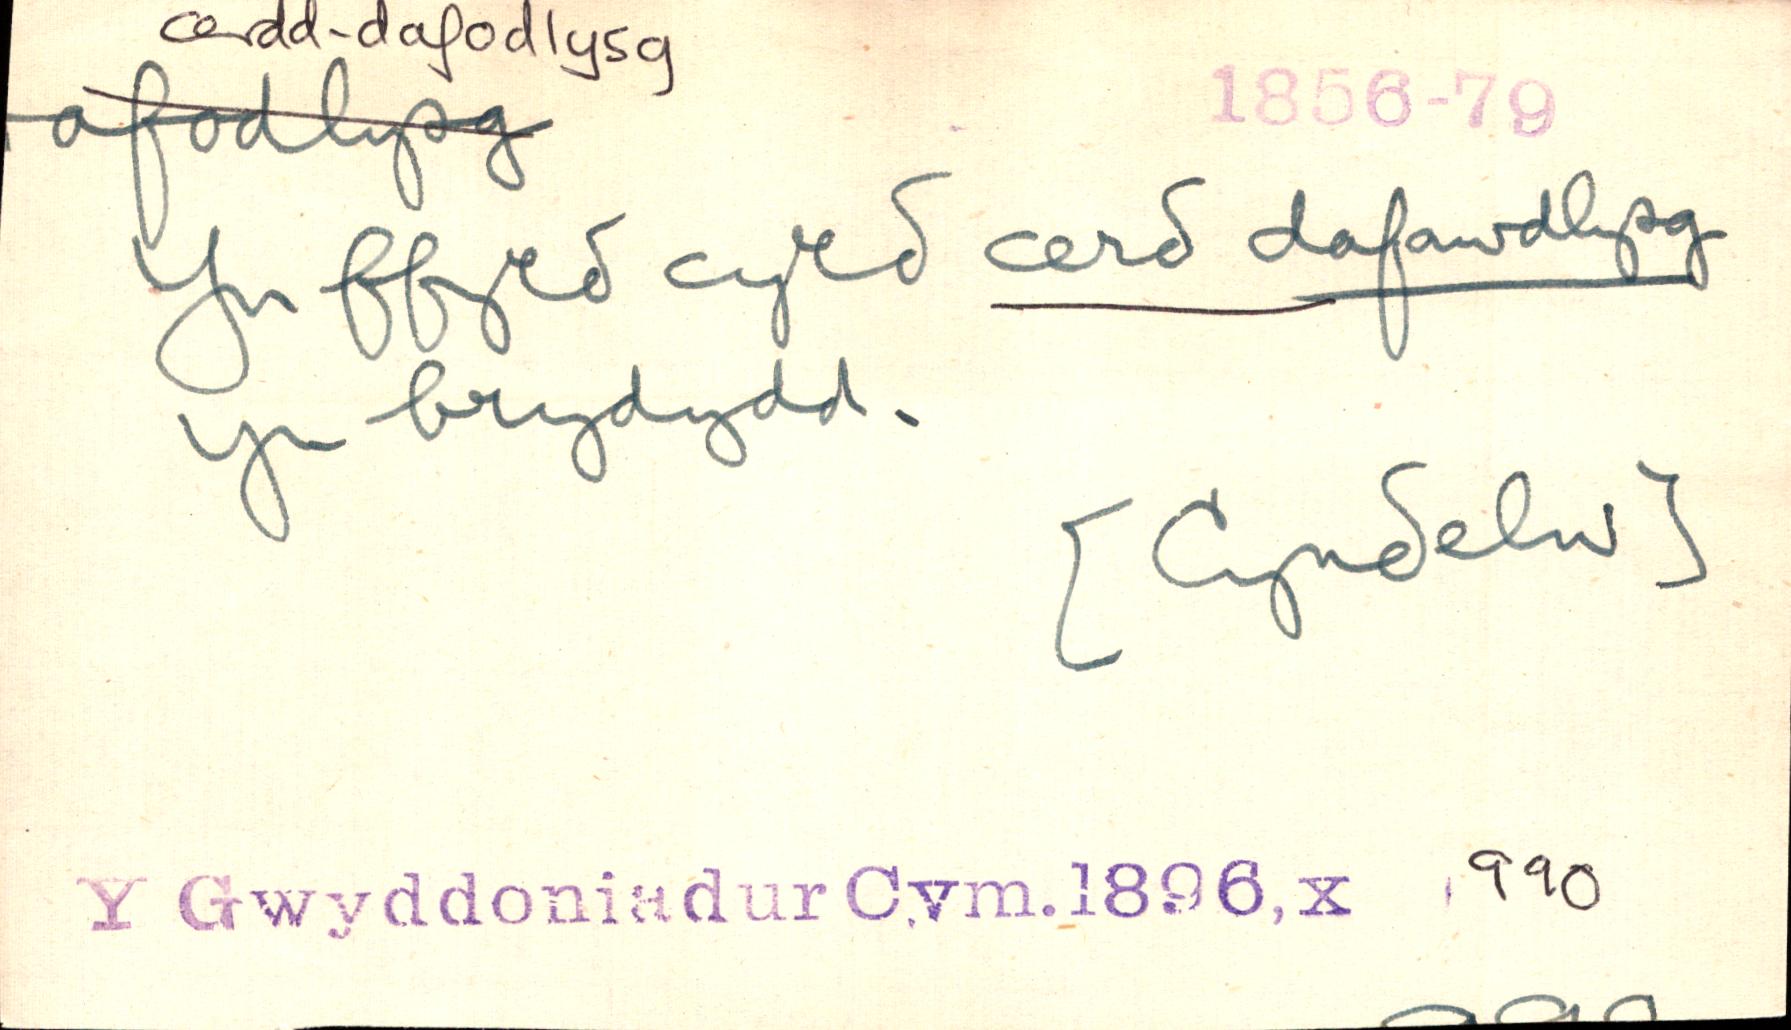 cerdd-dafodlysg
-afodlysg
1856-79
Yn ffyrẟ cyrẟ cerẟ dafawdlysg
yn brydydd.
[Cynẟelw]
Y Gwyddoniadur Cym. 1896, x 990